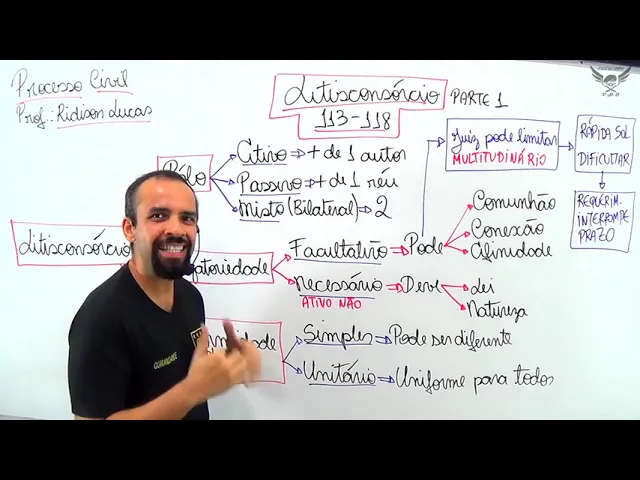 Processo Civil
Prof.: Ridison Lucas
Litisconsórcio
PARTE 1
113-118
Juiz pode limitar
MULTITUDINÁRIO
RÁPIDA SOL
DIFICULTAR
REQUERIM.
INTERROMPE
PRAZO
Pólo
Ativo → + de 1 autor
Passivo → + de 1 réu
Misto (Bilateral) → 2
Litisconsórcio
gatoriedade
Facultativo → Pode
Comunhão
Conexão
Afinidade
Necessário → Deve
ATIVO NÃO
Lei
Natureza
Simples → Pode ser diferente
Unitário → Uniforme para todos
COMANDANTE